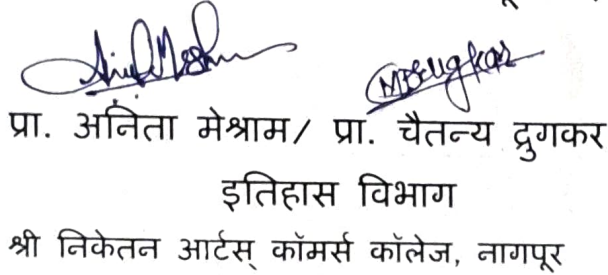 प्रा. अनिता मेश्राम/ प्रा. चैतन्य द्रुगकर
इतिहास विभाग
श्री निकेतन आर्टस् कॉमर्स कॉलेज, नागपूर